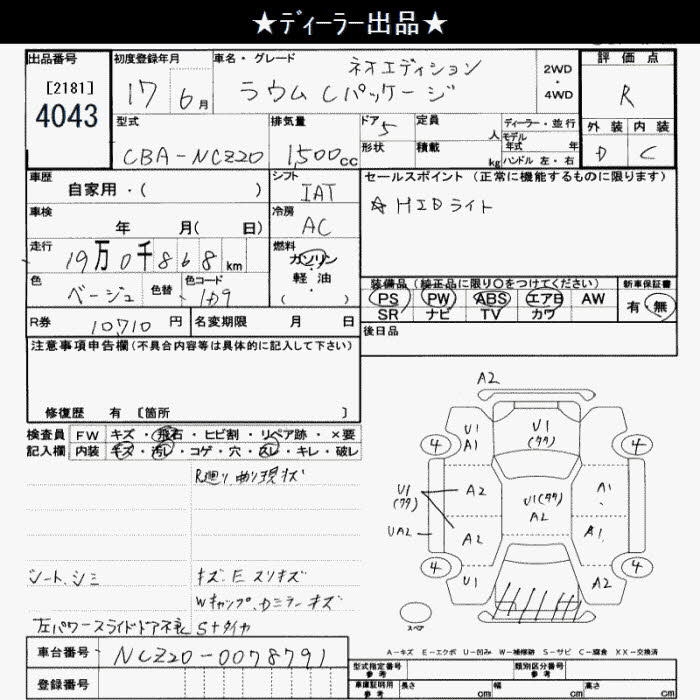 ★ディーラー出品★
出品番号
[2181]
4043
初度登録年月
17 6月
車名・グレード
ネオエディション
ラウム Cパッケージ
2WD
・
4WD
評価点
R
外装 内装
D C
型式
CBA-NCZ20
排気量
1,500cc
ドア 5
形状
定員
人
積載
kg
ディーラー・並行
モデル年式 年
ハンドル 左・右
車歴
自家用・( )
シフト
IAT
車検
年 月( 日)
冷房
AC
走行
19万0千868km
燃料
ガソリン
・
軽油
( )
色
ベージュ
色替
色コード
R券 10,710円
名変期限 月 日
セールスポイント(正常に機能するものに限ります)
☆HIDライト
装備品(純正品に限り○をつけてください)
PS PW ABS エアB AW
SR ナビ TV カワ
新車保証書
有・無
後日品
注意事項申告欄(不具合内容等は具体的に記入して下さい)
修復歴 有 [箇所 ]
検査員 FW キズ・飛石・ヒビ割・リペア跡・×要
記入欄 内装 キズ・汚レ・コゲ・穴・スレ・キレ・破レ
R廻り曲り現状
シート、シミ
キズ:E スリキズ
左パワースライドドア不良 Sタイヤ
車台番号 NCZ20-0078791
登録番号
A2
U1
A1
U1
(タタ)
4
4
U1
(タタ)
A2
U1(タタ)
A2
A1
UA2
A2
A1
4
4
U1
A2
スペア
A-キズ E-エクボ U-凹み W-補修跡 S-サビ C-腐食 XX-交換済
型式指定番号
参考
類別区分番号
参考
車庫証明用
参考
長さ cm
幅 cm
高さ cm